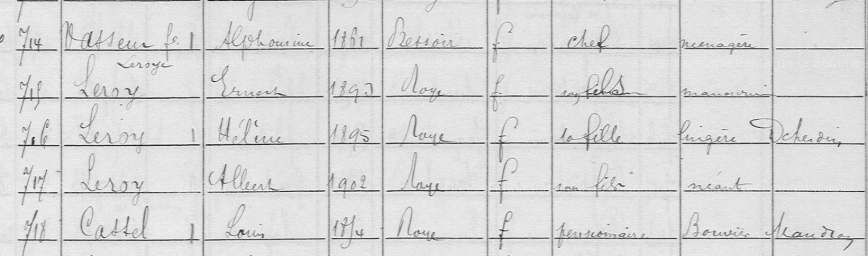 714 Vasseur fe 1 Alphonsine 1861 Bessoir f chef ménagère
Leroy
715 Leroy Ernest 1893 Roye f son fils
716 Leroy 1 Hélène 1895 Roye f sa fille lingère
717 Leroy Albert 1902 Roye f son fils néant
718 Cattel 1 Louis 1874 Roye f pensionnaire Bouvier